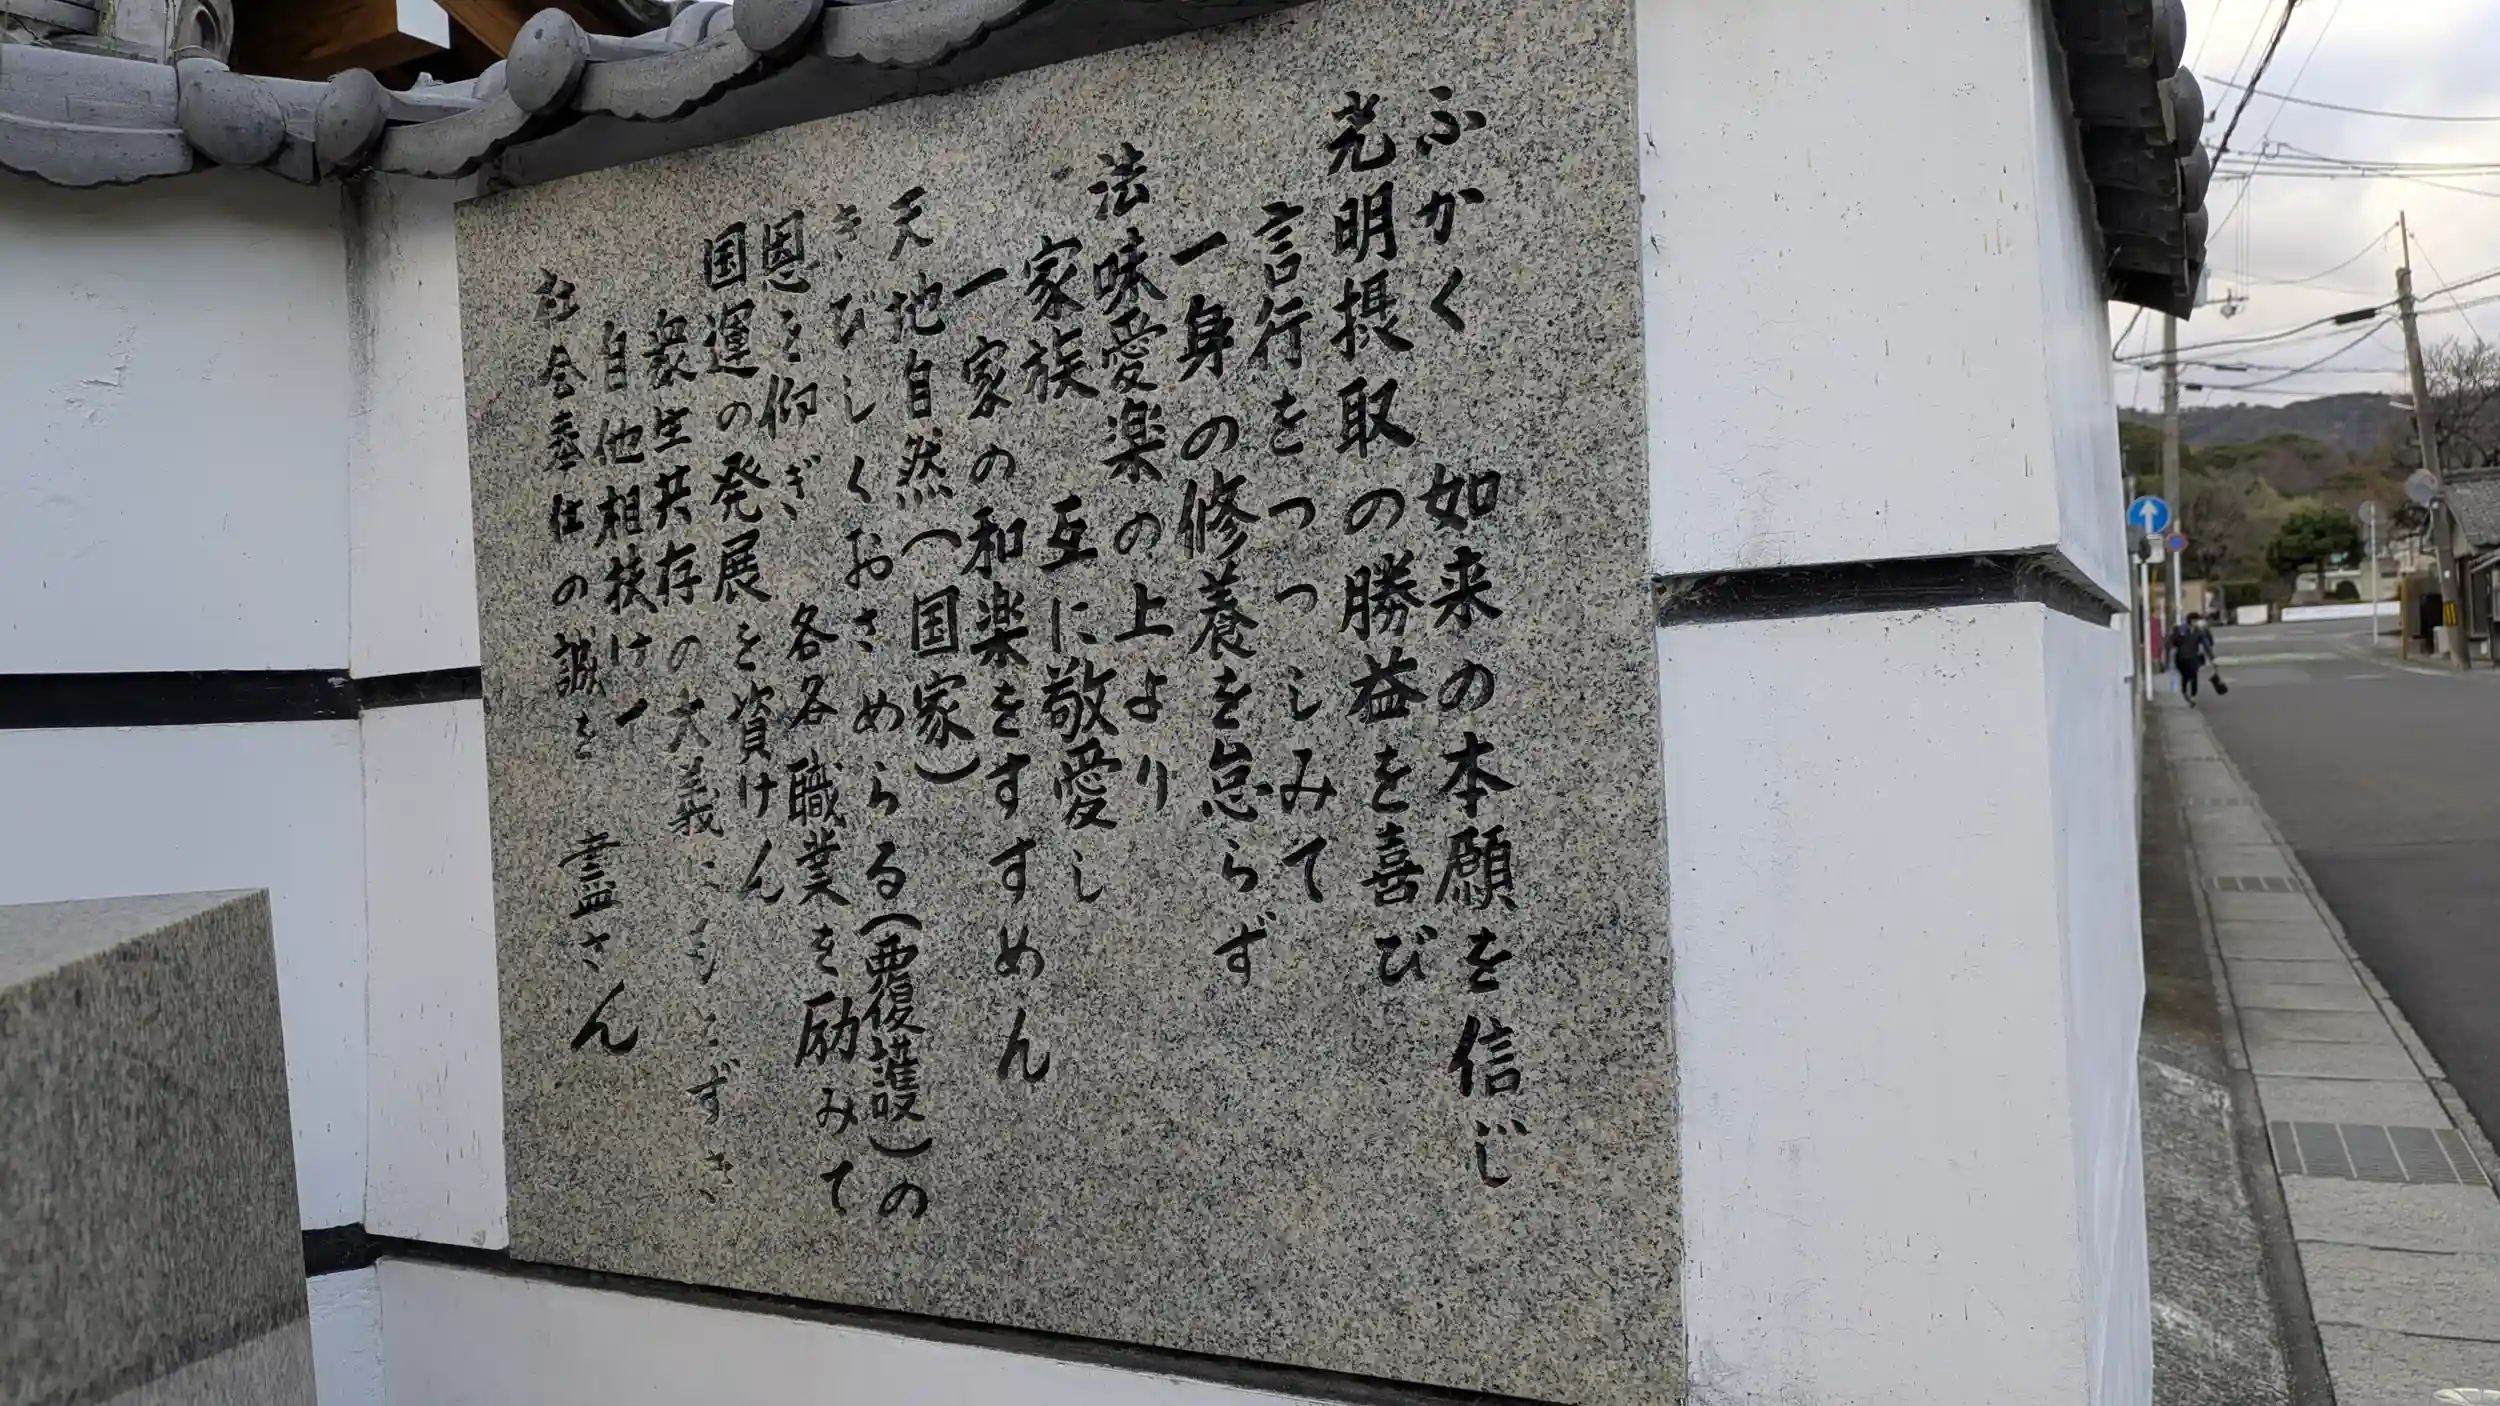 ふかく 如来の本願を信じ
光明摂取の勝益を喜び
言行をつつしみて
一身の修養を怠らず
法味愛楽の上より
互に敬愛し
家族
一家の和楽をすすめん
天地自然(国家)
きびしくおさめらる(覆護)の
恩を仰ぎ 各各職業を励みて
国運の発展を資けん
衆生共存の大義にもとずき
自他相扶け
社会奉仕の誠を 尽さん